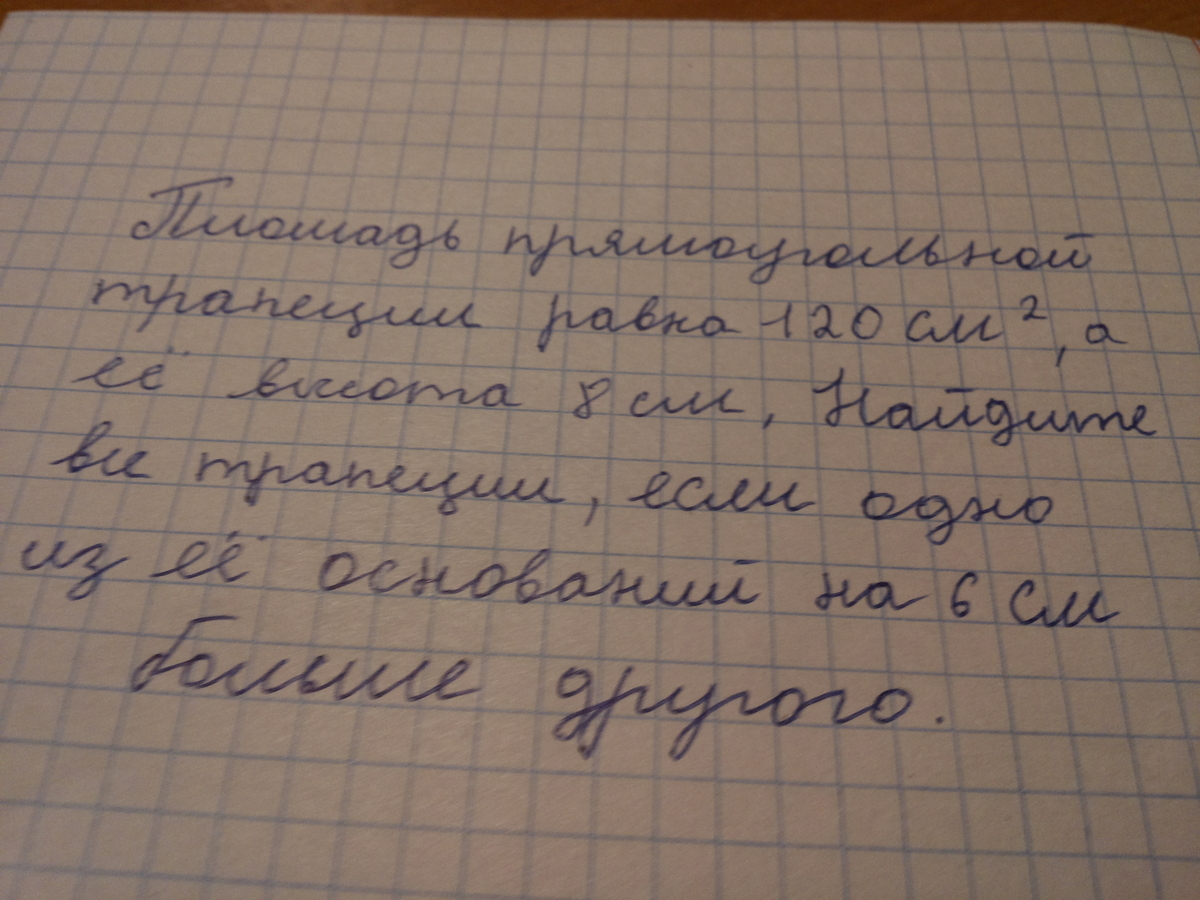 Площадь прямоугольной
трапеции равна 120 см², а
её высота 8 см, Найдите
все трапеции, если одно
из её оснований на 6 см
больше другого.